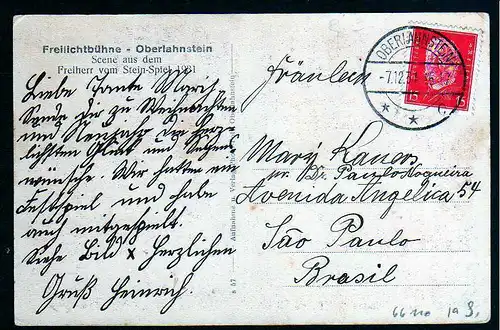 Freilichtbühne - Oberlahnstein
Scene aus dem
Freiherr vom Stein-Spiel 1931
Liebe Tante Mary
Sende Dir zu Weihnachten
und Neujahr die herz
lichsten Glück und Segens
wünsche. Wir hatten ein
Festspiel und habe
auch mitgespielt.
Siehe Bild x Herzlichen
Gruß Heinrich.
OBERLAHNSTEIN
-7.12.31
15 15
Fräulein
Mary
Dr. Paulo Nogueira
Avenida Angelica 54
São Paulo
Brasil